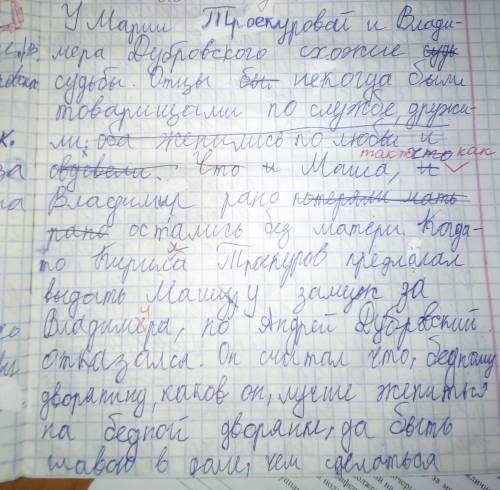 У Марии Троекуровой и Влади-
мера Дубровского схожие судь
судьбы. Отцы бы некогда были
товарищами по службе, дружи-
ли, оба женились по любви и
овдовели. Что и Маша, так что и как
Владимыр рано потеряли мать
рано остались без матери. Когда-
то Кирила Троекуров предлагал
выдать Машу замуж за
Владимира, но Андрей Дубровский
отказался. Он считал что, бедному
дворянину, каков он, лучше жениться
на бедной дворянке, да быть
главою в доме, чем сделаться